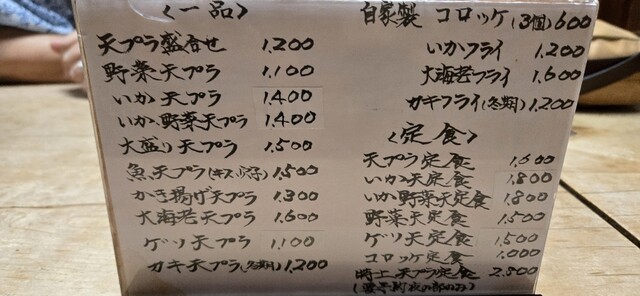 〈一品〉
天プラ盛合せ 1,200
野菜天プラ 1,100
いか天プラ 1,400
いか野菜天プラ 1,400
大盛り天プラ 1,500
魚天プラ(キス,穴子) 1,500
かき揚げ天プラ 1,300
大海老天プラ 1,600
ゲソ天プラ 1,100
ガキ天プラ(冬期) 1,200
自家製 コロッケ(3個) 600
いかフライ 1,200
大海老フライ 1,600
ガキフライ(冬期) 1,200
〈定食〉
天プラ定食 1,600
いか天定食 1,800
いか野菜天定食 1,800
野菜天定食 1,500
ゲソ天定食 1,500
コロッケ定食 1,000
特上天プラ定食 2,800